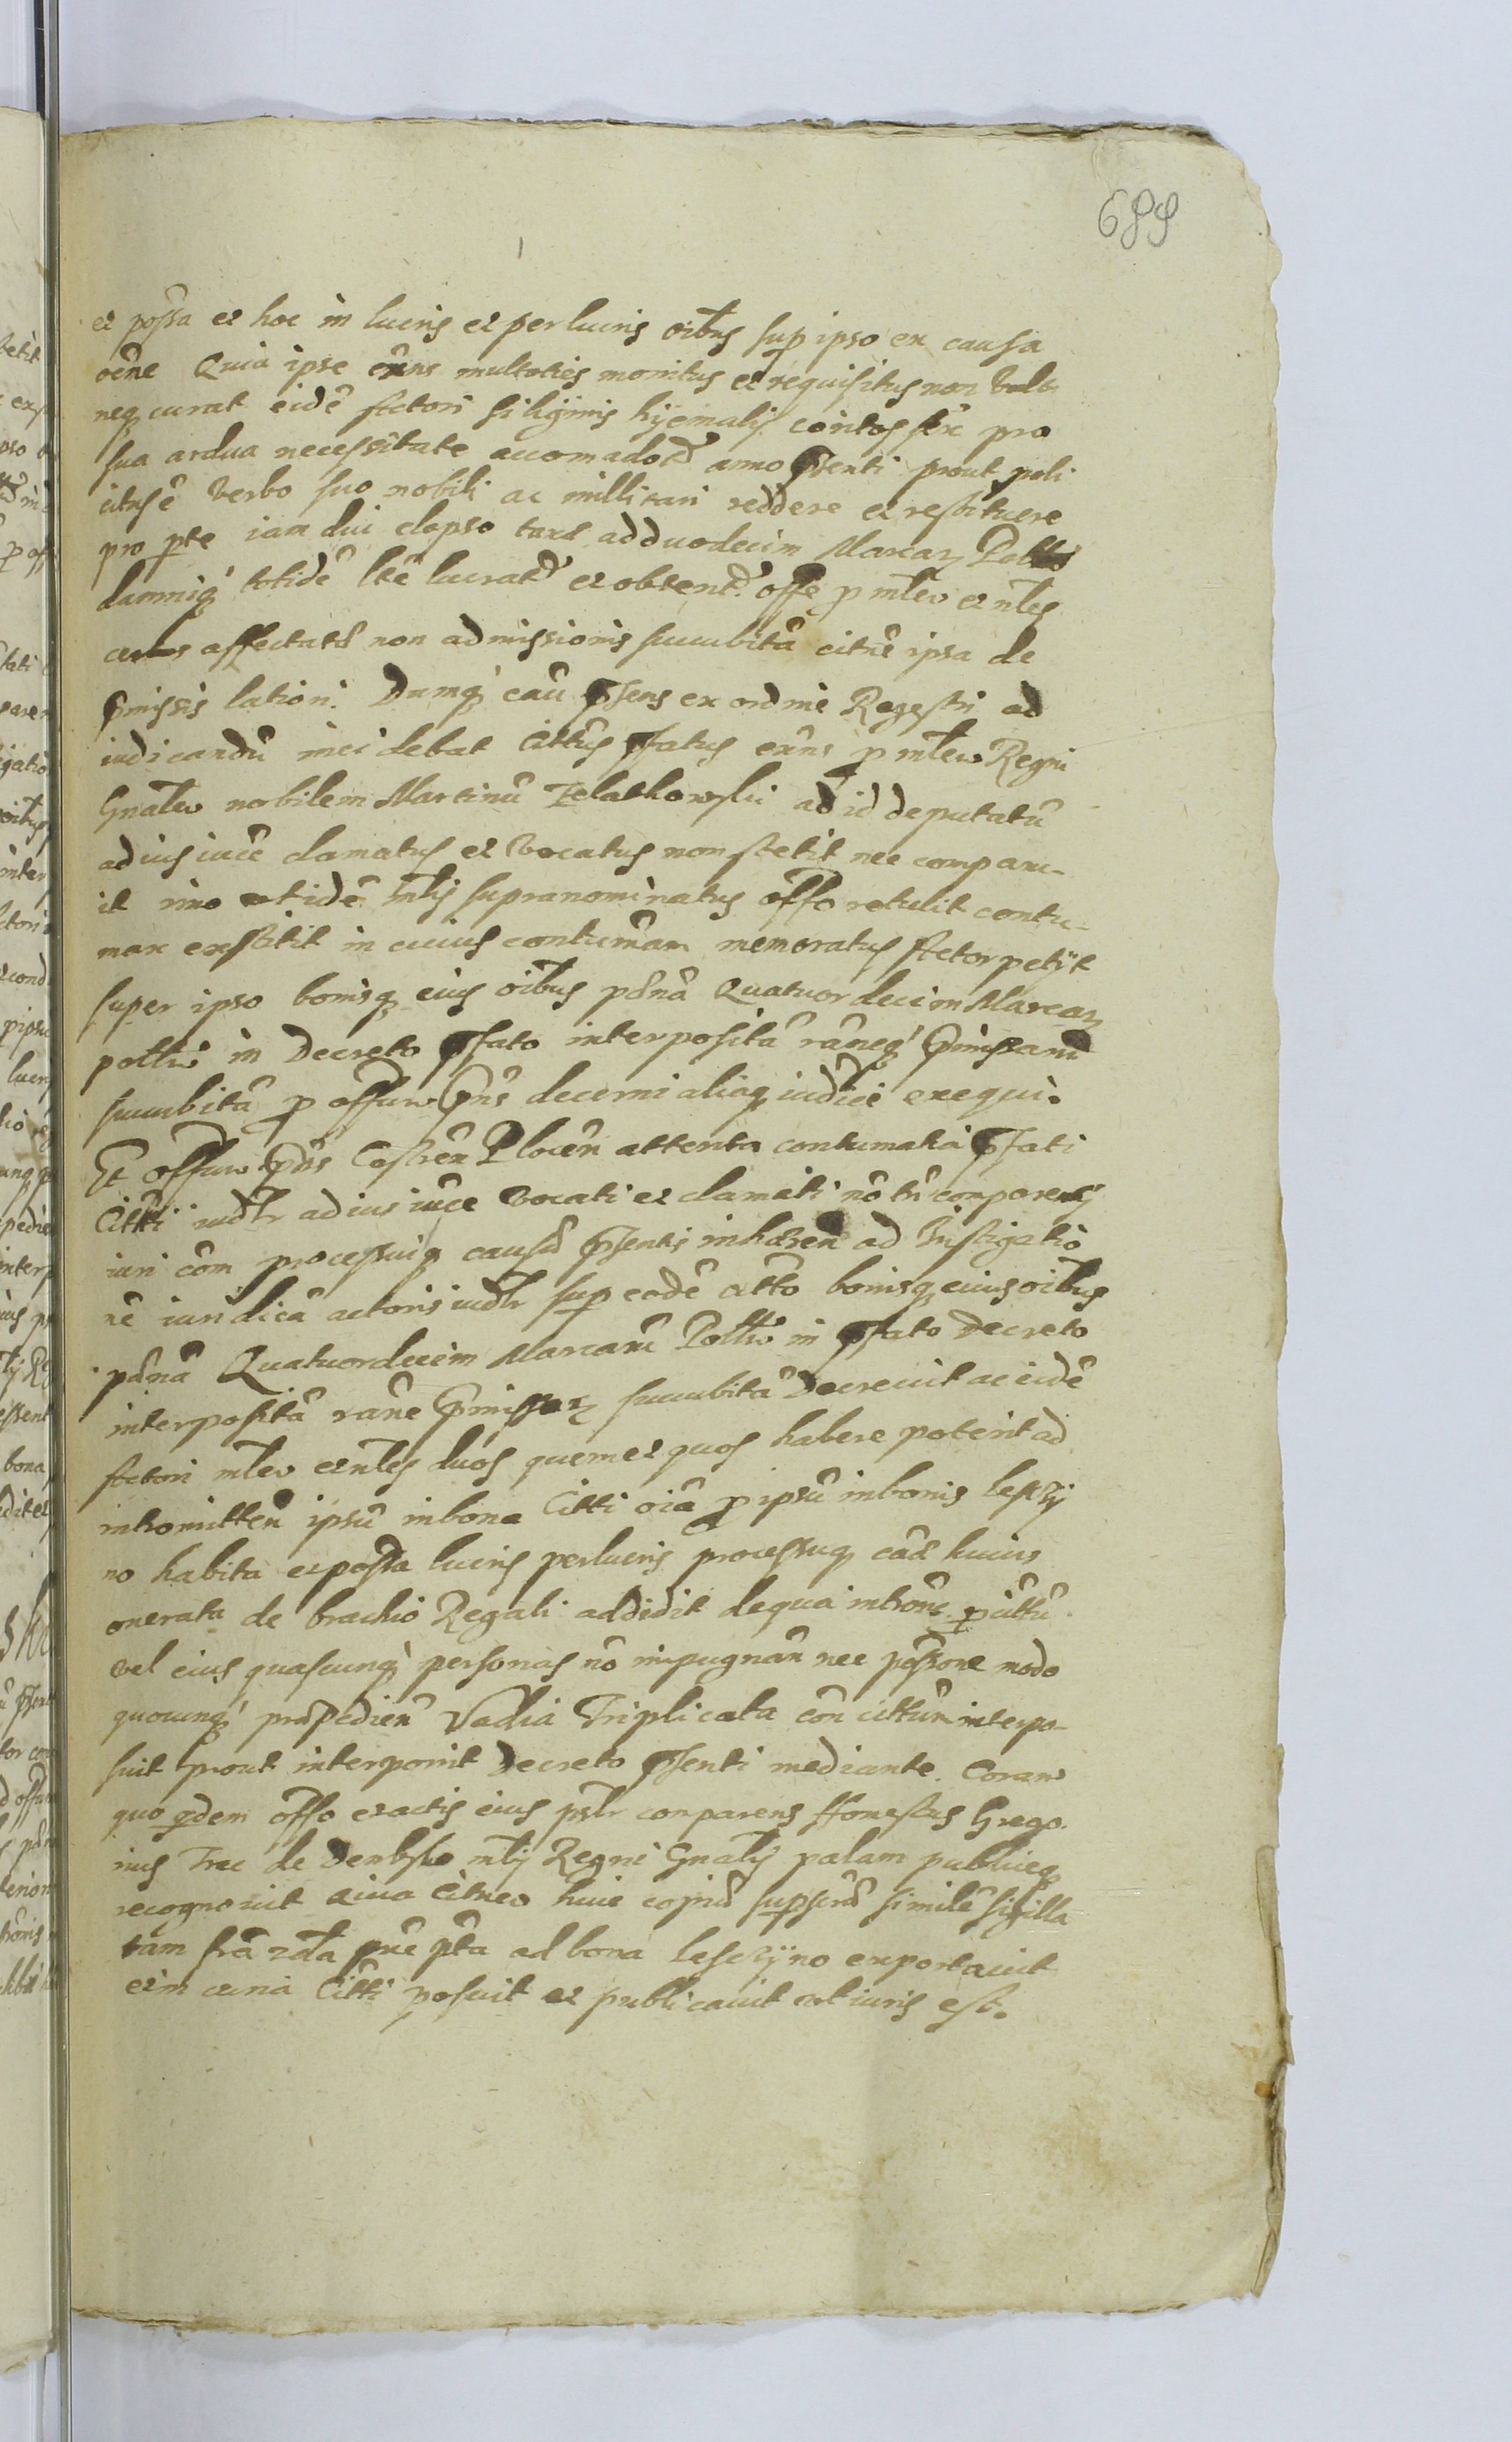 689
et possa et hoc in lucris et perlucris oibus sup ipso ex causa
oene Quia ipse exns multoties monitus et requisitus non
neq curat eidē Actori siliginis hyemalis coritos sex pro
sua ardua necessitate accomadotū anno psenti prout poli
citus ē verbo suo nobili ac millitari reddere et restituere
pro pte iam diu elapso taxt ad duodecim Marcar
damniq totidē ltē lucrat et obtent offē p mlew et nles
affectatū non admissionis succubitā citnē ipsa de
pmissis lation. Dumq caū psens ex ordine Regestri ad
iudicandū incidebat Cittus pfatus exns p mlew Regni
Gnalew nobilem Martinū Zelatkowski ad id deputatū
ad ius iucē clamatus et vocatus non stetit nec comparu-
it imo vt idē mlis supranominatus offo retulit contu-
max exstitit in cuius contumam memoratus Actor petyt
super ipso bonisq eius oibus pœnā Quatuordecim Marcar
polliu in Decreto pfato interpositā rāneq pmissarū
succubitā p offum pns decerni aliaq iudice exequi.
Et offum pns Castren Plocen attenta contumatia pfati
Citti iudlr ad ius iuce vocati et clamati nō tn conparens
iuri com processuiq causae psentis inhaeren ad Instigatio
nē iuridicā actoris iudlr sup eodē citto bonisq eius oibus
pœnā Quatuordecim Marcarū Polliu in pfato Decreto
interpositā rāne pmissar succubitā Decreuit ac eidē
Actori mlew et nles duos quem et quos habere poterit ad
intromitten ipsū in bona Citti oia p ipsū in bonis lesczy
no habita et possa lucris perlucris processuq cās huius
onerata de brachio Regali addidit de qua introne p cittū
vel eius quascunq personas nō impugnan nec possone modo
quocunq praepedien Vadia Triplicata con cittum interpo-
suit prout interponit Decreto psenti mediante. Coram
quo qdem offo et actis eius pslr conparens Honestus Grego.
rius Trac de Dembsko mlis Regni Gnalis palam publiceq
recognouit quia Citneo huic coinū supscrō similē sigilla
tam fra 2da pne pta ad bona lesczyno exportauit
eim curia Citti posuit et publicauit vt iuris est.